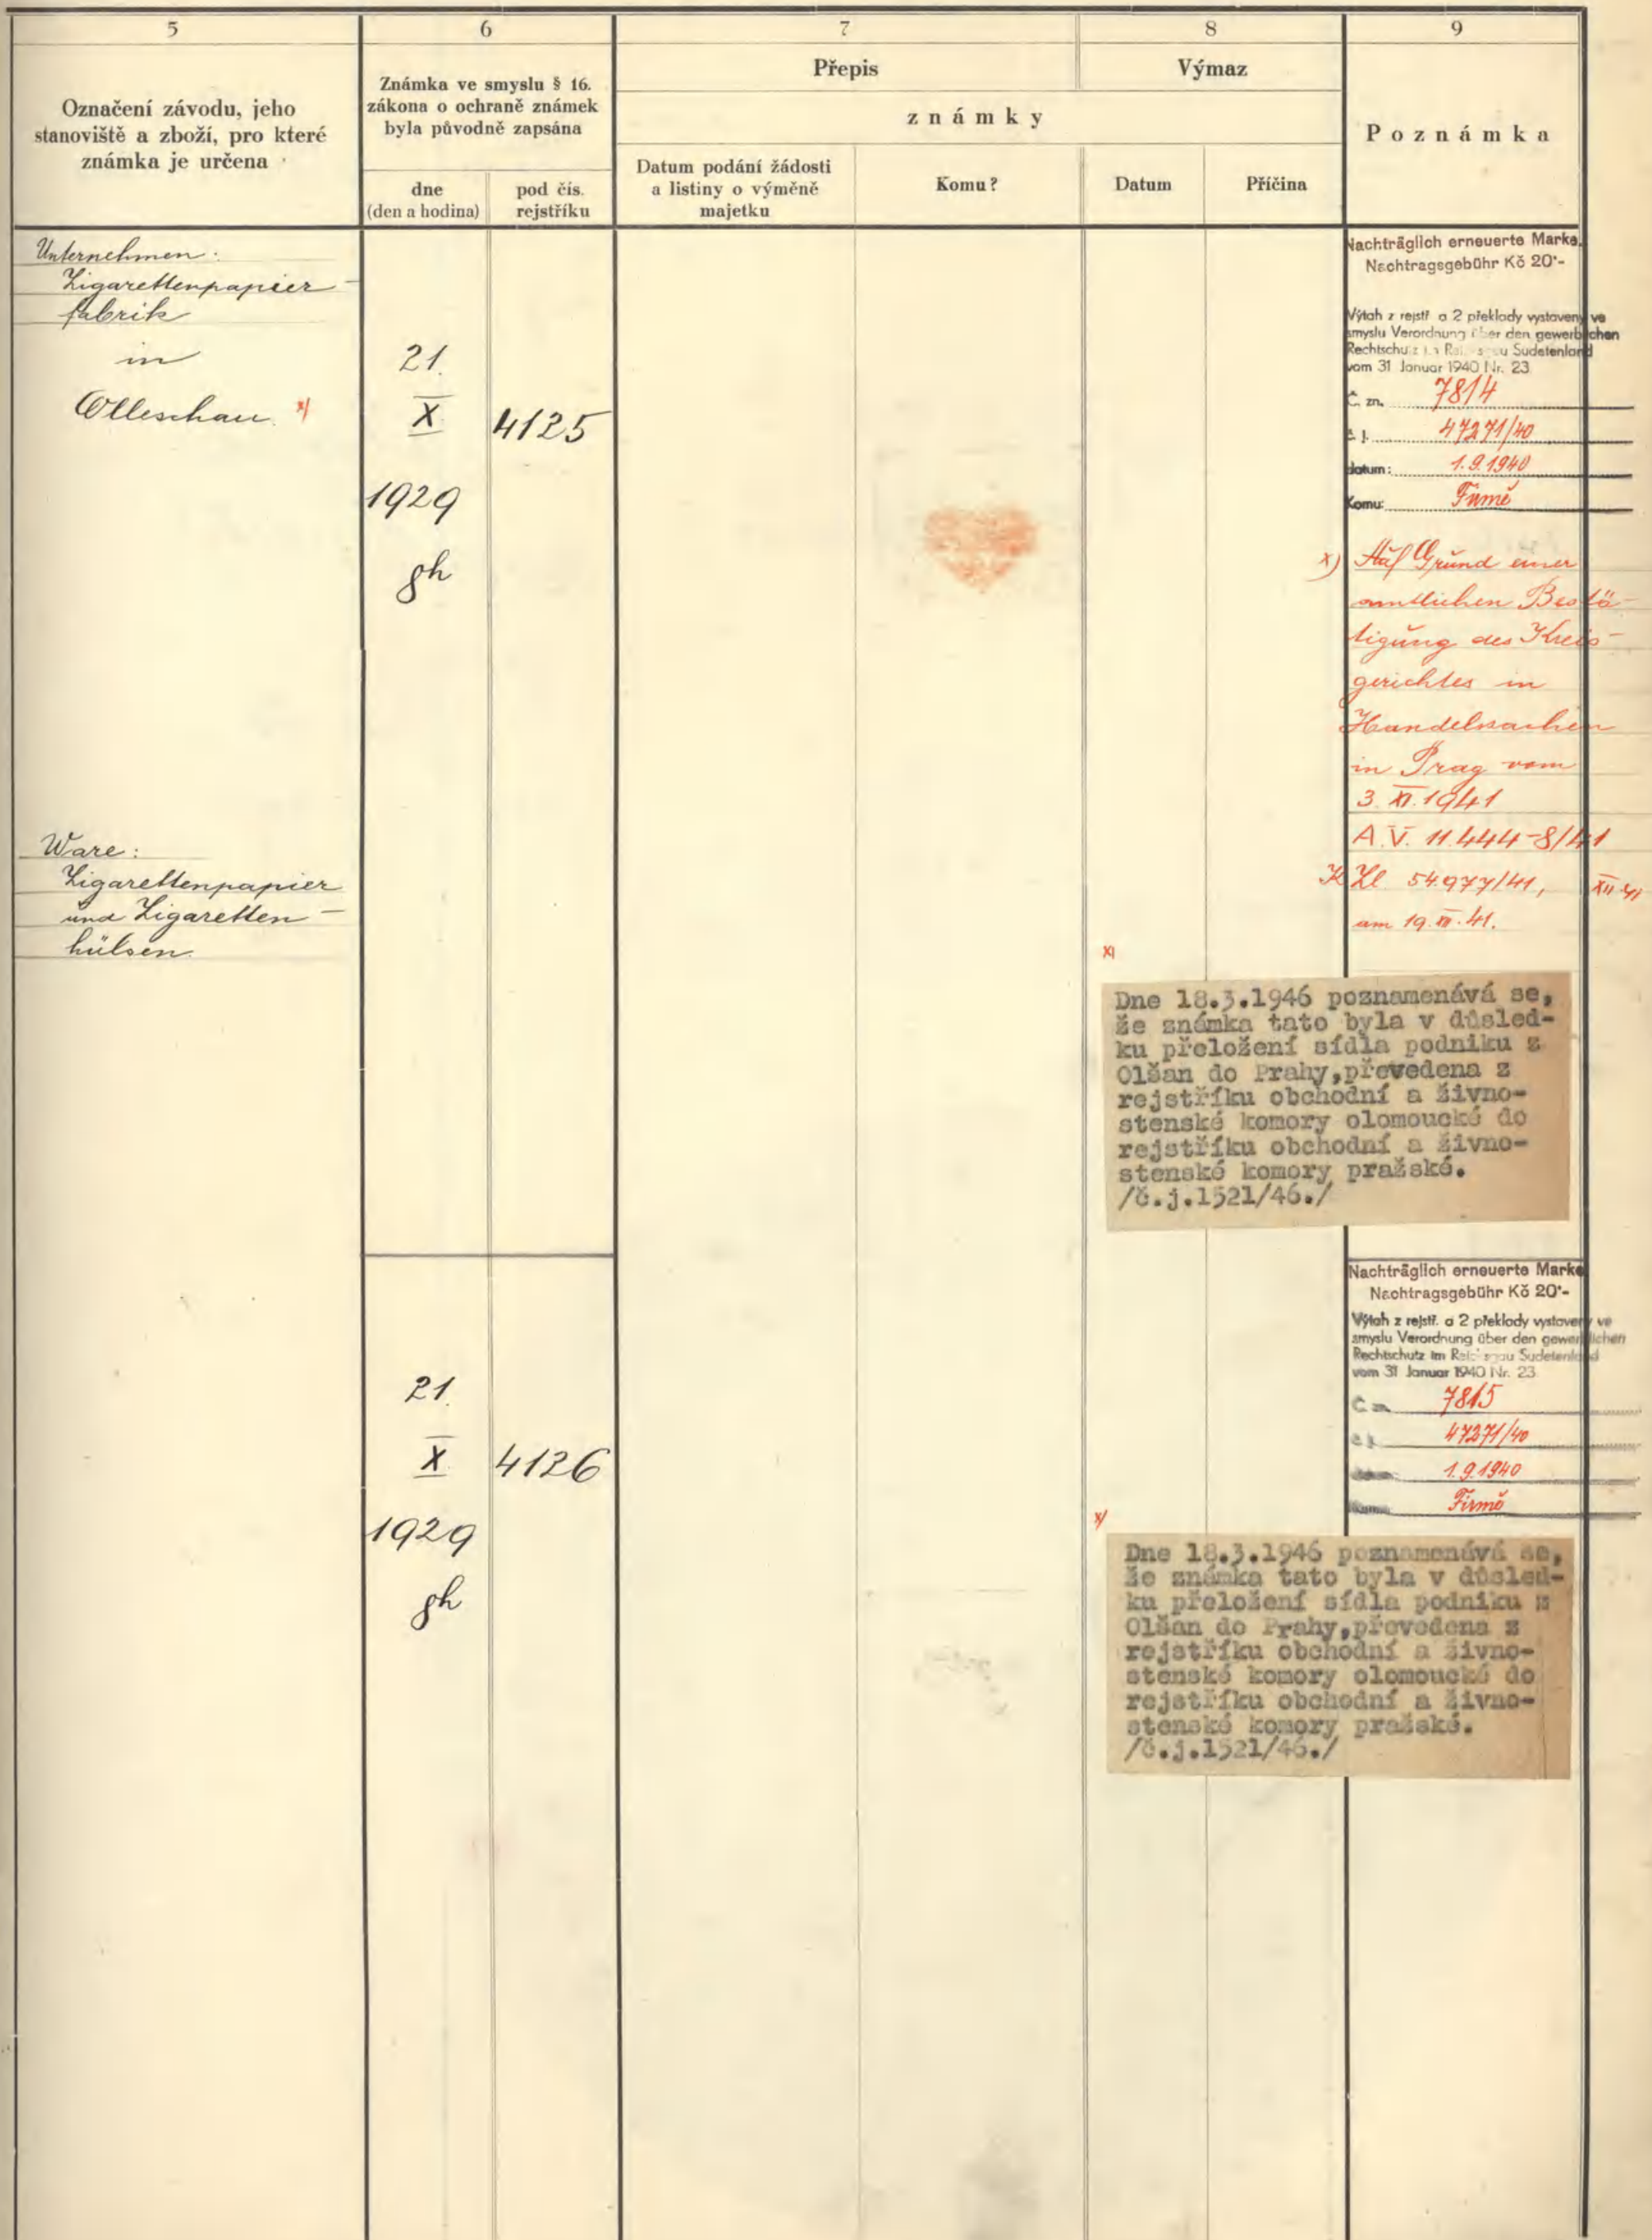 5
6
7
8
9
Označení závodu, jeho
stanoviště a zboží, pro které
známka je určena
Známka ve smyslu § 16.
zákona o ochraně známek
byla původně zapsána
dne
(den a hodina)
pod čís.
rejstříku
Přepis
Výmaz
známky
Datum podání žádosti
a listiny o výměně
majetku
Komu?
Datum
Příčina
Poznámka
Unternehmen:
Zigarettenpapier-
fabrik
in
Olleschau. x/
21.
X.
1929
8h
4125
Nachträglich erneuerte Marke.
Nachtragsgebühr Kč 20·-
Výtah z rejstř. a 2 překlady vystaveny ve
smyslu Verordnung über den gewerblichen
Rechtschutz im Reichsgau Sudetenland
vom 31 Januar 1940 Nr. 23
Č. zn. 7814
č. j. 47271/40
datum: 1.9.1940
Komu: Firmě
x) Auf Grund einer
amtlichen Bestä-
tigung des Kreis-
gerichtes in
Handelssachen
in Prag vom
3. XI. 1941
A.V. 11.444-8/41
K Zl. 54.977/41,
am 19. XII. 41.
Ware:
Zigarettenpapier
und Zigaretten-
hülsen.
x/
Dne 18.3.1946 poznamenává se,
že známka tato byla v důsled-
ku přeložení sídla podniku z
Olšan do Prahy,převedena z
rejstříku obchodní a živno-
stenské komory olomoucké do
rejstříku obchodní a živno-
stenské komory pražské.
/č.j.1521/46./
21.
X.
1929
8h
4126
Nachträglich erneuerte Marke
Nachtragsgebühr Kč 20·-
Výtah z rejstř. a 2 překlady vystaveny ve
smyslu Verordnung über den gewerblichen
Rechtschutz im Reichsgau Sudetenland
vom 31 Januar 1940 Nr. 23
7815
47271/40
1.9.1940
Firmě
x/
Dne 18.3.1946 poznamenává se,
že známka tato byla v důsled-
ku přeložení sídla podniku z
Olšan do Prahy,převedena z
rejstříku obchodní a živno-
stenské komory olomoucké do
rejstříku obchodní a živno-
stenské komory pražské.
/č.j.1521/46./